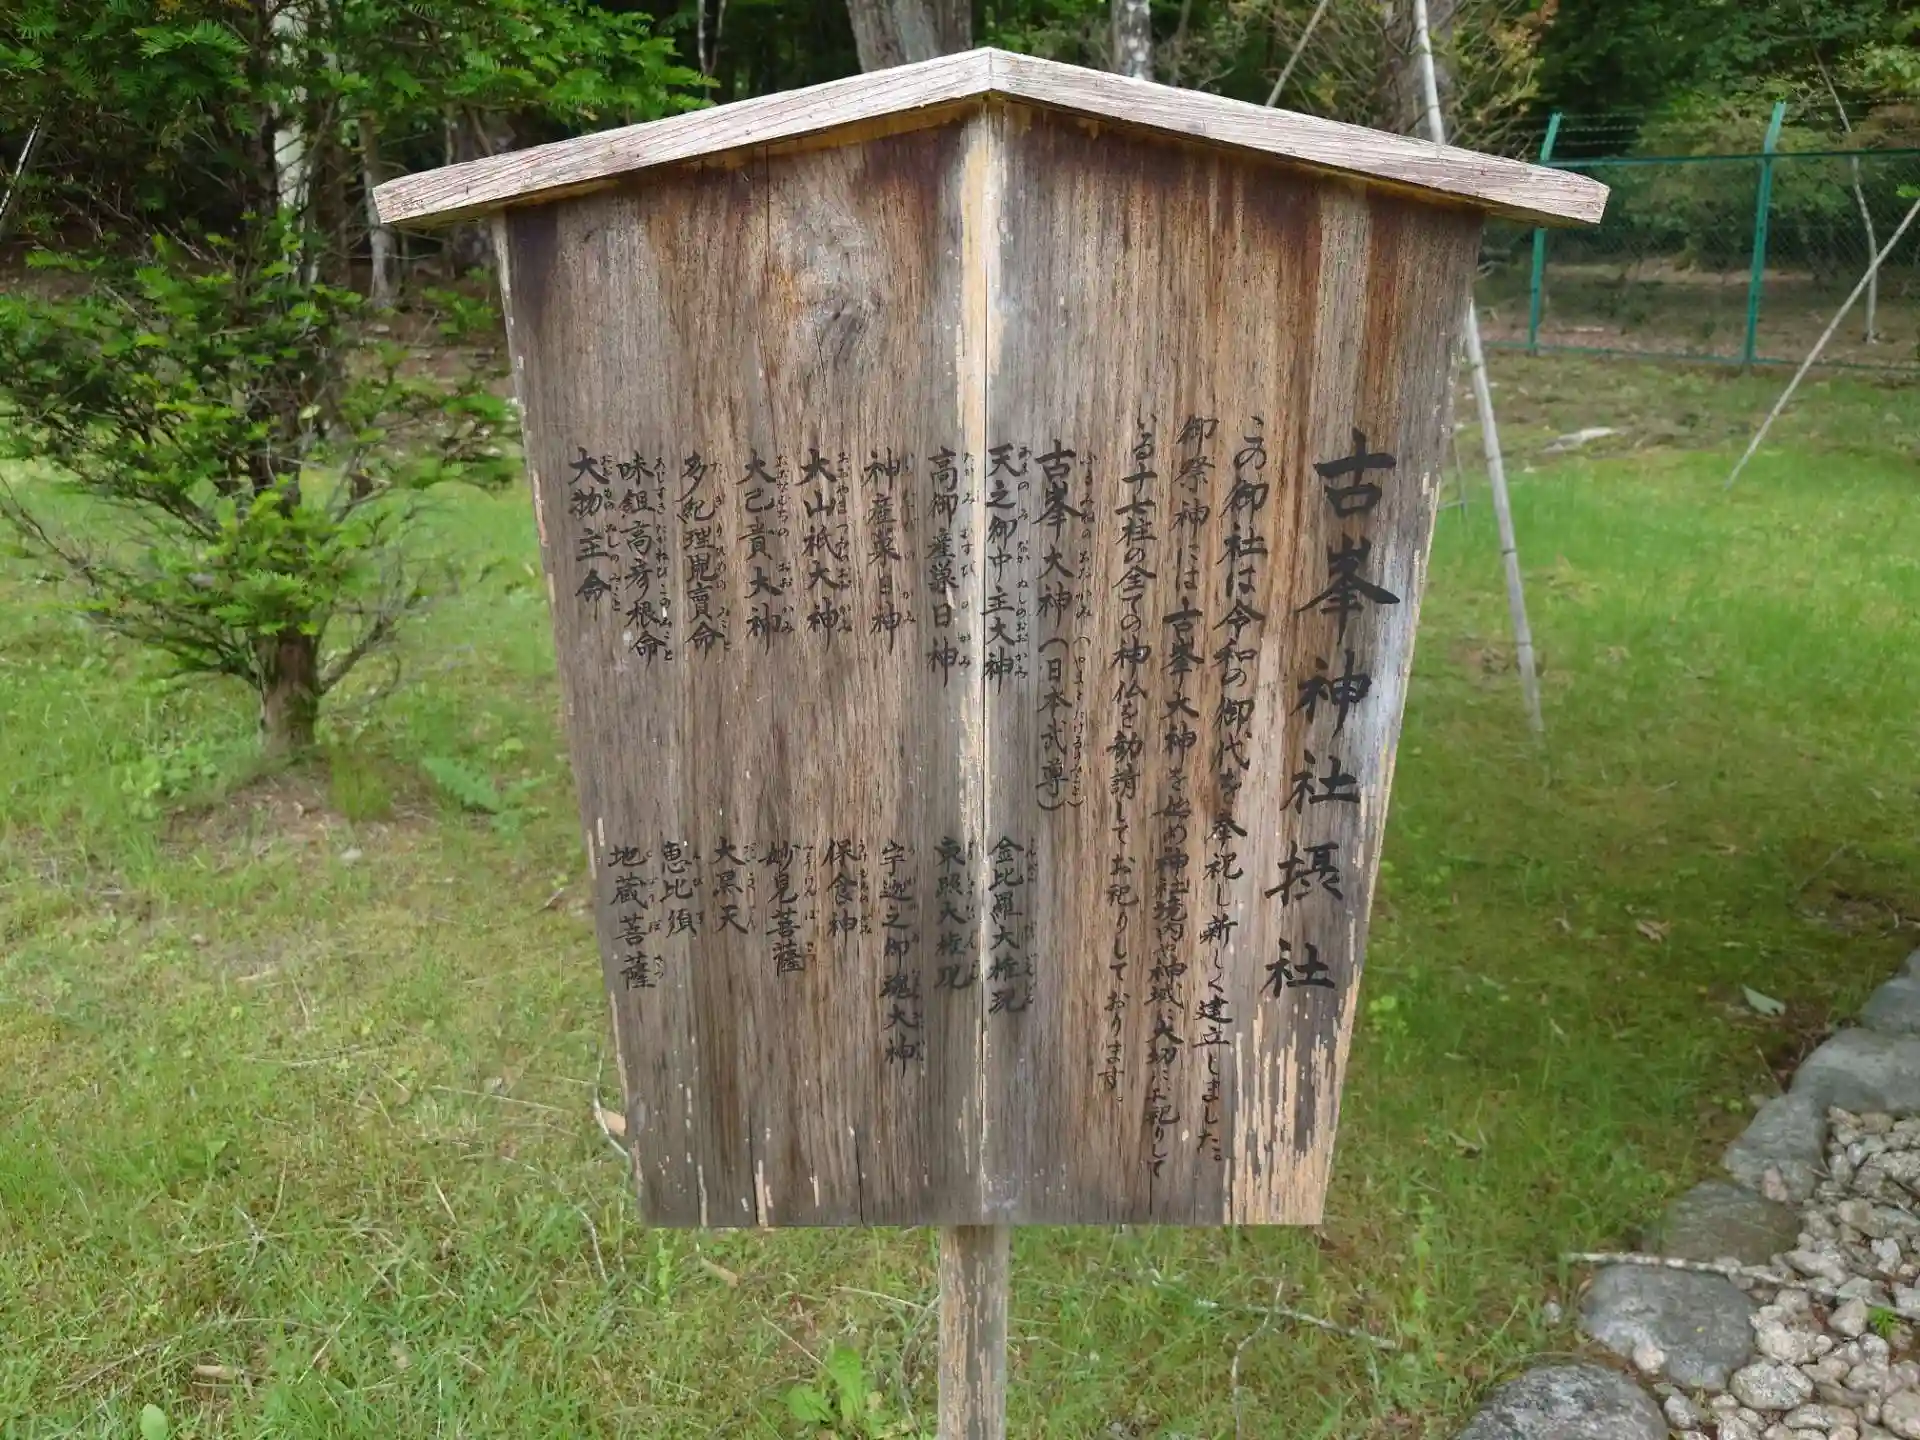 古峯神社摂社
この御社は令和の御代を奉祝し新しく建立しました。
御祭神には古峯大神を始め神社境内や神域に大切にお祀りして
いる十七柱の全ての神仏を勧請してお祀りしております。
古峯大神（日本武尊）
天之御中主大神
高御産巣日神
神産巣日神
大山祇大神
大己貴大神
多紀理毘賣命
味鉏高彦根命
大物主命
金比羅大権現
東照大権現
宇迦之御魂大神
保食神
妙見菩薩
大黒天
恵比須
地蔵菩薩